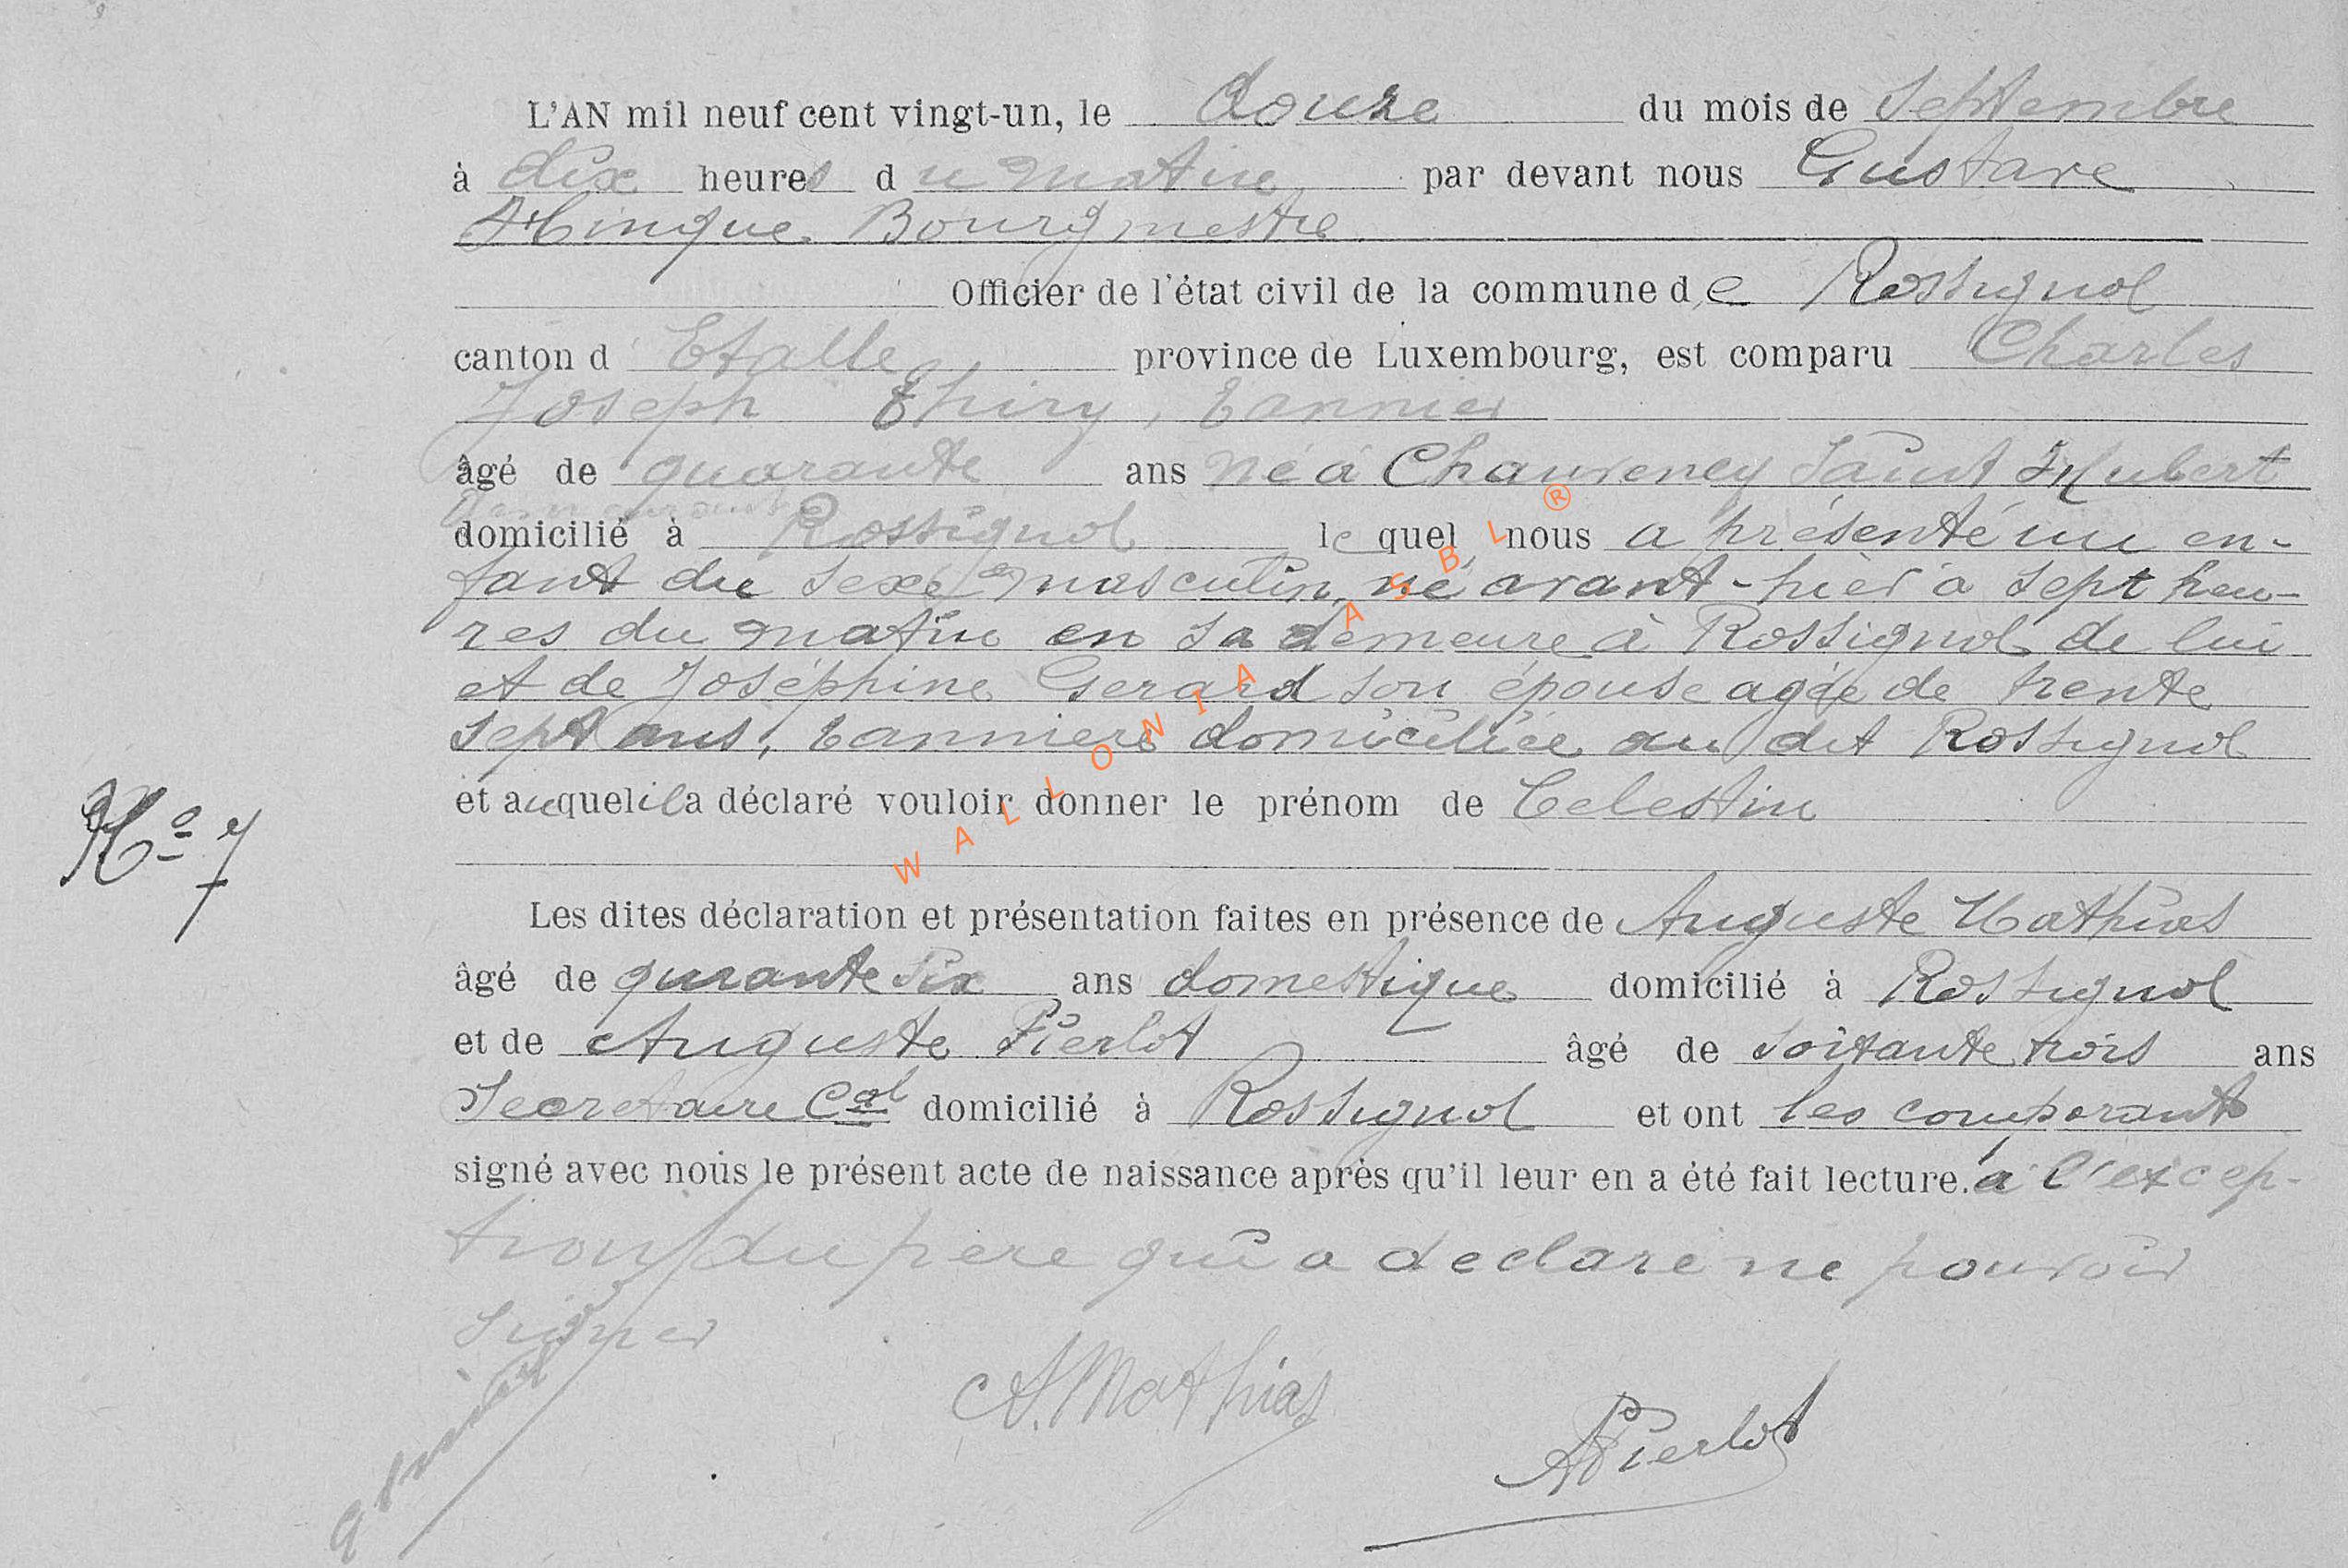 L'AN mil neuf cent vingt-un, le douze du mois de Septembre
à dix heures du matin par devant nous Gustave
Hinque Bourgmestre
Officier de l'état civil de la commune de Rossignol
canton d'Etalle province de Luxembourg, est comparu Charles
Joseph Thiry, Vannier
âgé de quarante ans né à Chauvency Saint Hubert
demeurant
domicilié à Rossignol lequel nous a présenté un en-
fant du sexe masculin, né avant-hier à sept heu-
res du matin en sa demeure à Rossignol de lui
et de Joséphine Gerard son épouse agée de trente
sept ans, Vannière domiciliée au dit Rossignol
et auquel il a déclaré vouloir donner le prénom de Celestin
N° 7
Les dites déclaration et présentation faites en présence de Auguste Mathias
âgé de qurante six ans domestique domicilié à Rossignol
et de Auguste Pierlot âgé de soixante trois ans
Secretaire Cal domicilié à Rossignol et ont les comparants
signé avec nous le présent acte de naissance après qu'il leur en a été fait lecture. à l'excep-
tion du père qui a declaré ne pouvoir
signer
A. Mathias
APierlot
WALLONIA ASBL ®